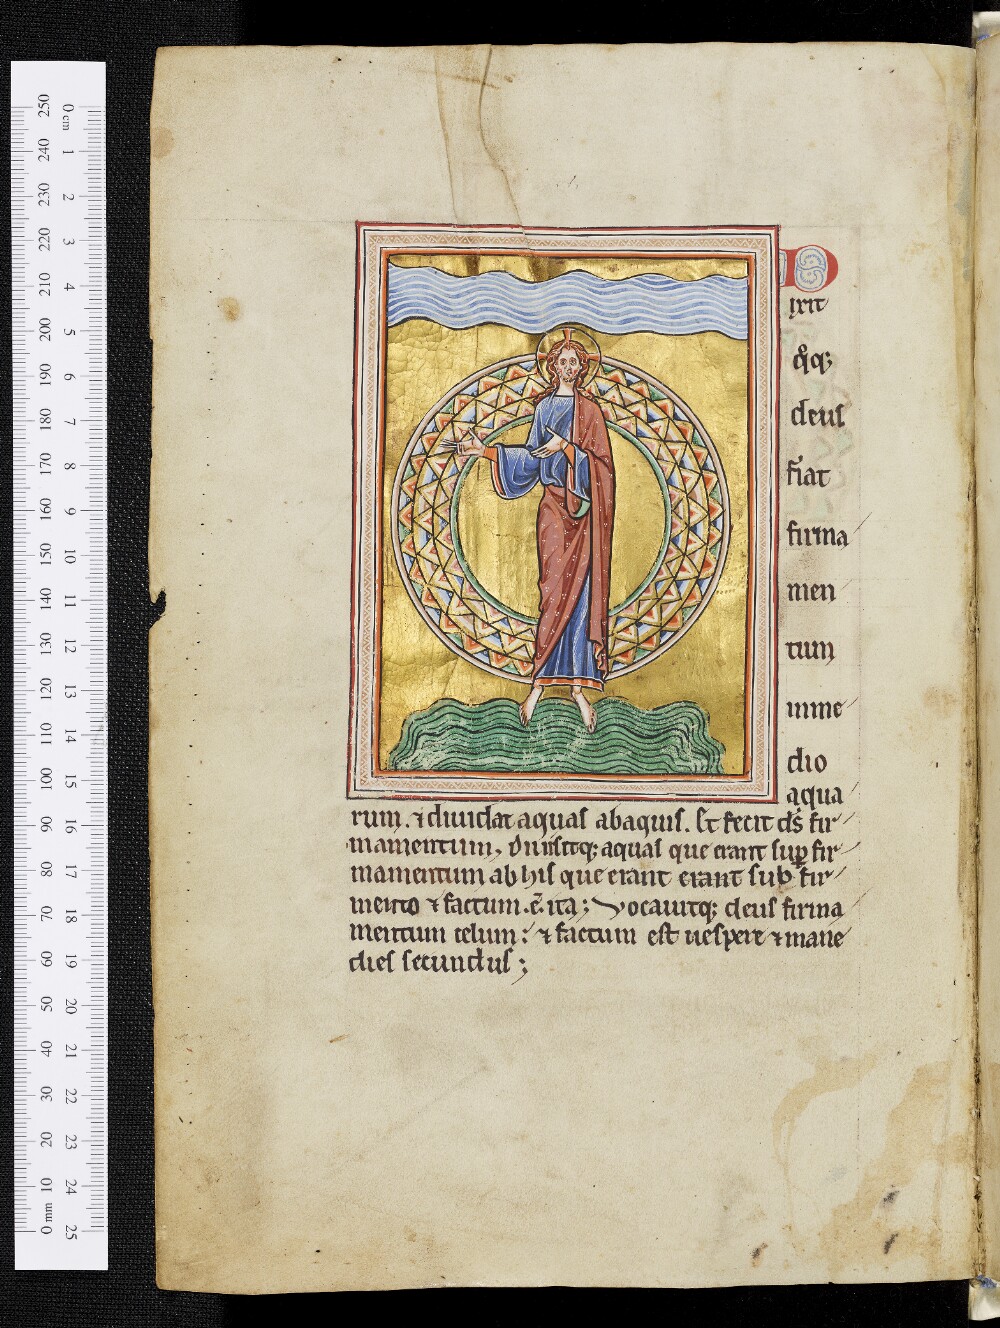 D
ixit
q̊q;
deus
fiat
firma
men
tum
inme
dio
aqua
rum. ⁊ diuidat aquas abaquis. Et fecit ds̄ fir
mamentum, diuisitq; aquas que erant sup̱ fir
mamentum ab his que erant erant sub fir
mento ⁊ factum .ē. ita; Vocauitq; deus firma
mentum celum: ⁊ factum est uespere ⁊ mane
dies secundus;
0 cm 1 2 3 4 5 6 7 8 9 10 11 12 13 14 15 16 17 18 19 20 21 22 23 24 25
250 240 230 220 210 200 190 180 170 160 150 140 130 120 110 100 90 80 70 60 50 40 30 20 10 mm 0